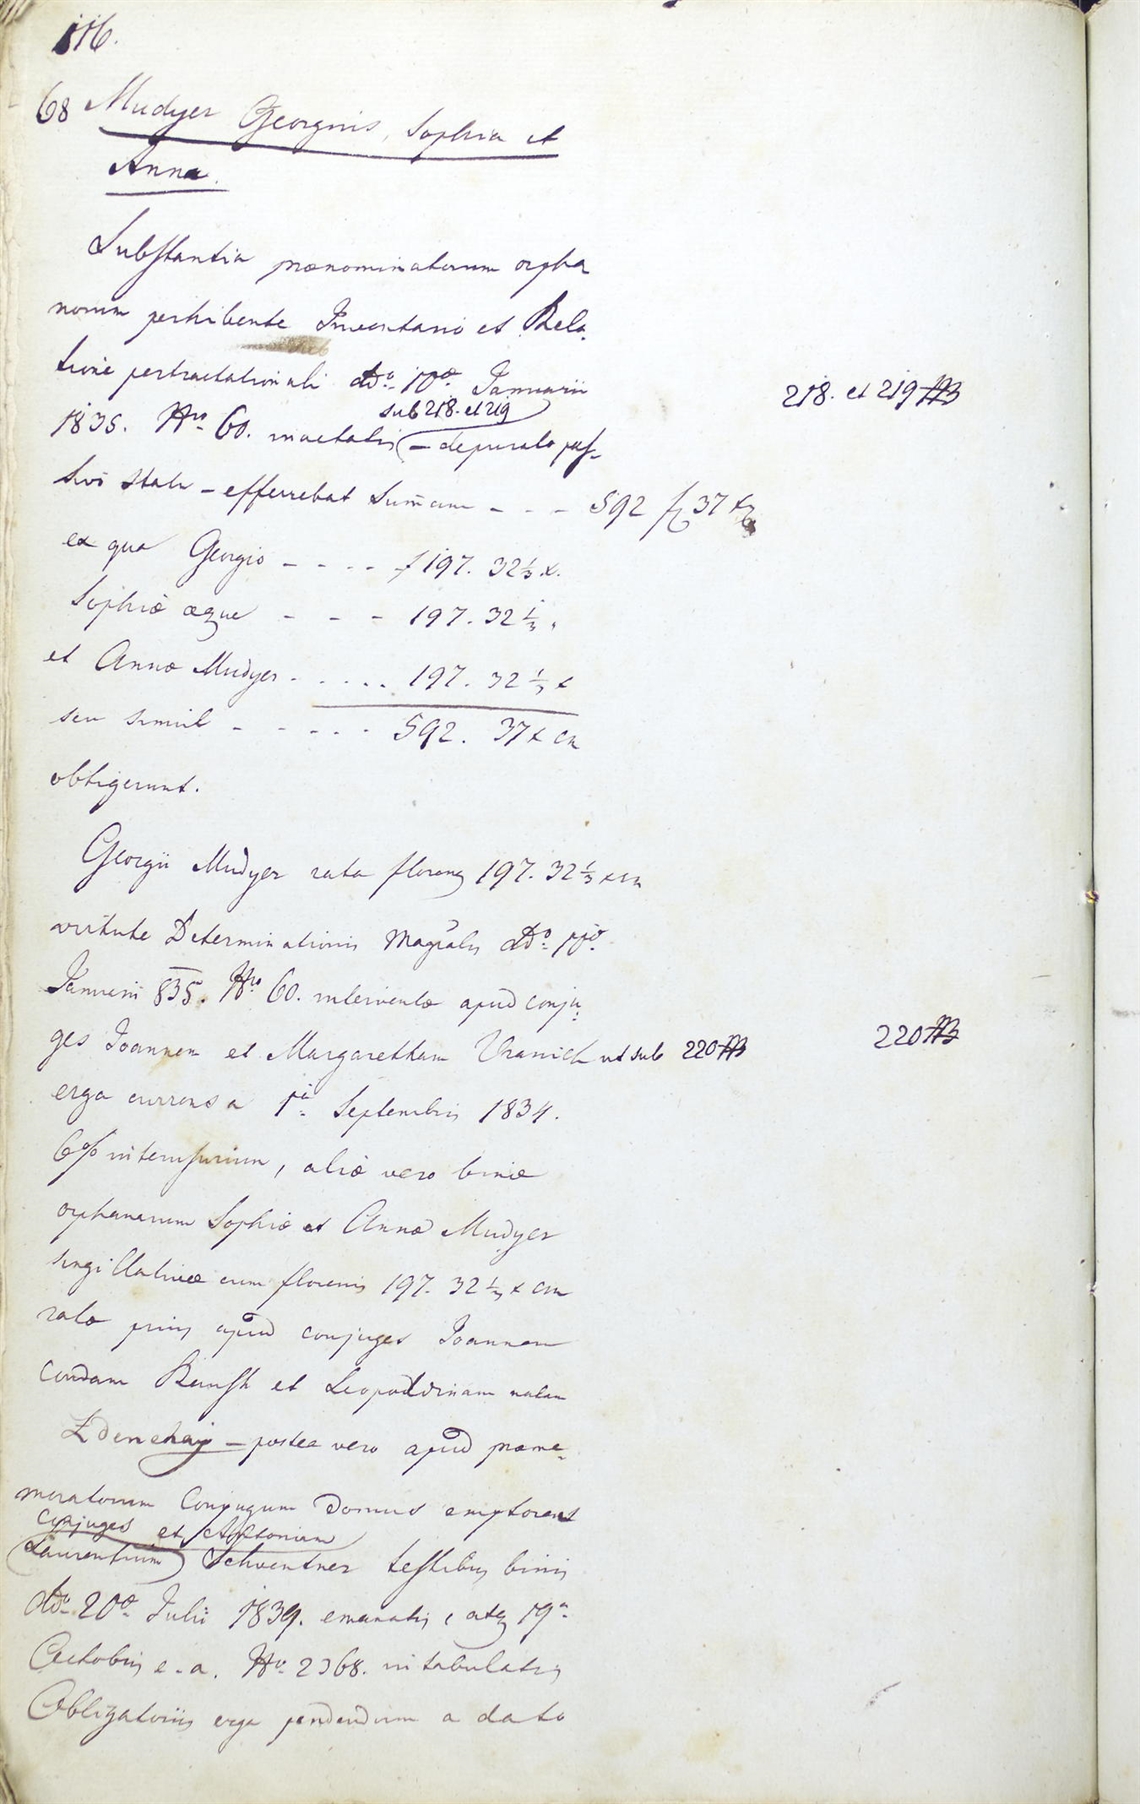 116.
68 Mudyer Georgius, Sophia et
Anna.
Substantia praenominatorum orpha
norum perhibente Inventario et Rela-
tione pertractationali ddo 10a Januarii
218. et 219
sub 218. et 219
1835. Nro 60. mactatis - depurato pas-
sivo statu - efferrebat summam - - - 592 f 37 x
ex qua Georgio - - - - f 197. 32 1/3 x.
Sophiae aeque - - - 197. 32 1/3
et Annae Mudyer - . . . . 197. 32 1/3 x
seu simul - - - - - 592. 37 x cm
obtigerunt.
Georgii Mudyer rata floren 197. 32 1/3 x cm
virtute Determinationis Magralis ddo
Januarii 835. Nro 60. interventae apud conju-
ges Joannem et Margaretham Vranich ut sub 220
220
erga currens a 1a Septembris 1834.
6% interusurium, aliae vero binae
orphanarum Sophiae et Annae Mudyer
singillative cum florenis 197. 32 1/3 x cm
ratae prius apud conjuges Joannem
condam et Leopoldinam natam
- postea vero apud prame-
moratorum Conjugum Domus emptores
conjuges et Antoniam
Laurentium Schventner testibus binis
ddo 20a Julii 1839. emanatis, atq 19a
Octobris e. a. No 2368. intabulatis
Obligatoriis erga pendendum a dato